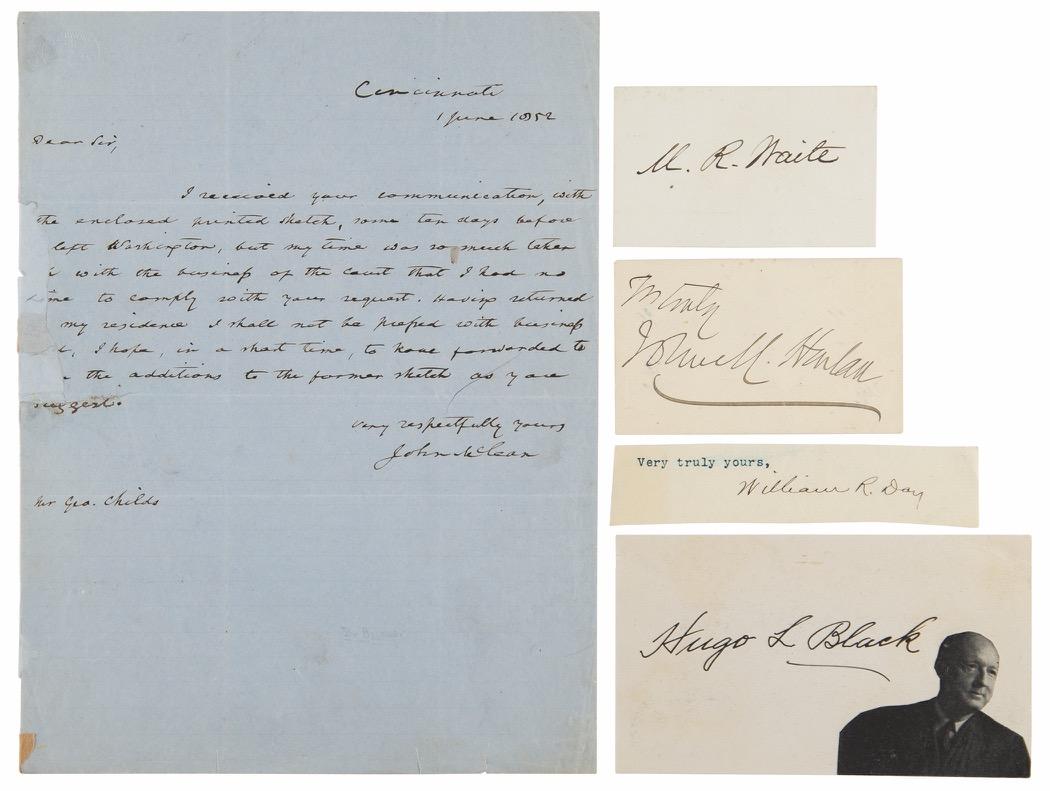 Cincinnati
1 June 1852
Dear Sir,
I received your communication, with
the enclosed printed sketch, some ten days before
left Washington, but my time was so much taken
with the business of the court that I had no
me to comply with your request. Having returned
my residence I shall not be pressed with business
I hope, in a short time, to have forwarded to
the additions to the former sketch as you
suggest.
Very respectfully yours
John McLean
Mr Geo. Childs
M. R. Waite
Yrs truly
John M. Harlan
Very truly yours,
William R. Day
Hugo L Black